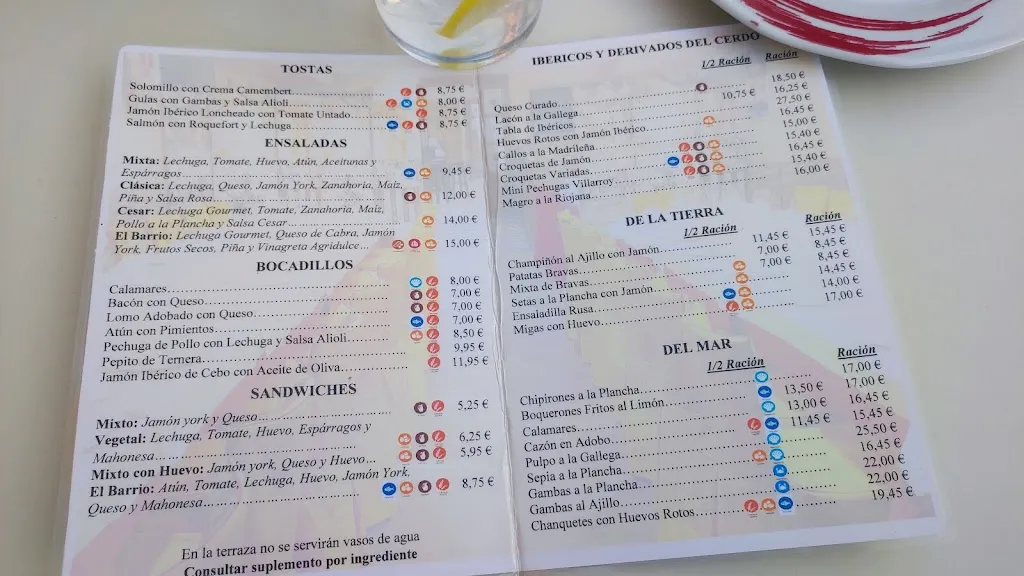 TOSTAS
Solomillo con Crema Camembert 8,75 €
Gulas con Gambas y Salsa Alioli 8,00 €
Jamón Ibérico Loncheado con Tomate Untado 8,75 €
Salmón con Roquefort y Lechuga 8,75 €
ENSALADAS
Mixta: Lechuga, Tomate, Huevo, Atún, Aceitunas y
Espárragos 9,45 €
Clásica: Lechuga, Queso, Jamón York, Zanahoria, Maíz,
Piña y Salsa Rosa 12,00 €
Cesar: Lechuga Gourmet, Tomate, Zanahoria, Maíz,
Pollo a la Plancha y Salsa Cesar 14,00 €
El Barrio: Lechuga Gourmet, Queso de Cabra, Jamón
York, Frutos Secos, Piña y Vinagreta Agridulce 15,00 €
BOCADILLOS
Calamares 8,00 €
Bacón con Queso 7,00 €
Lomo Adobado con Queso 7,00 €
Atún con Pimientos 7,00 €
Pechuga de Pollo con Lechuga y Salsa Alioli 8,50 €
Pepito de Ternera 9,95 €
Jamón Ibérico de Cebo con Aceite de Oliva 11,95 €
SANDWICHES
Mixto: Jamón york y Queso 5,25 €
Vegetal: Lechuga, Tomate, Huevo, Espárragos y
Mahonesa 6,25 €
Mixto con Huevo: Jamón york, Queso y Huevo 5,95 €
El Barrio: Atún, Tomate, Lechuga, Huevo, Jamón York,
Queso y Mahonesa 8,75 €
En la terraza no se servirán vasos de agua
Consultar suplemento por ingrediente
IBERICOS Y DERIVADOS DEL CERDO
1/2 Ración Ración
Queso Curado 18,50 €
Lacón a la Gallega 10,75 € 16,25 €
Tabla de Ibéricos 27,50 €
Huevos Rotos con Jamón Ibérico 16,45 €
Callos a la Madrileña 15,00 €
Croquetas de Jamón 15,40 €
Croquetas Variadas 16,45 €
Mini Pechugas Villarroy 15,40 €
Magro a la Riojana 16,00 €
DE LA TIERRA
1/2 Ración Ración
Champiñón al Ajillo con Jamón 11,45 € 15,45 €
Patatas Bravas 7,00 € 8,45 €
Mixta de Bravas 7,00 € 8,45 €
Setas a la Plancha con Jamón 14,45 €
Ensaladilla Rusa 14,00 €
Migas con Huevo 17,00 €
DEL MAR
1/2 Ración Ración
Chipirones a la Plancha 17,00 €
Boquerones Fritos al Limón 13,50 € 17,00 €
Calamares 13,00 € 16,45 €
Cazón en Adobo 11,45 € 15,45 €
Pulpo a la Gallega 25,50 €
Sepia a la Plancha 16,45 €
Gambas a la Plancha 22,00 €
Gambas al Ajillo 22,00 €
Chanquetes con Huevos Rotos 19,45 €